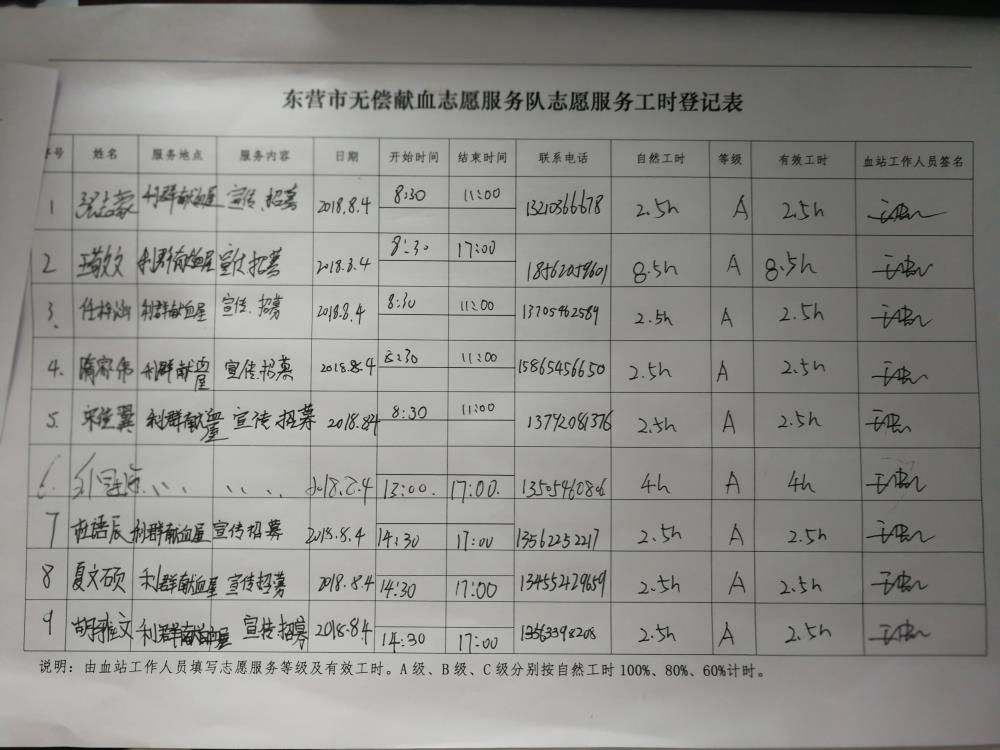 东营市无偿献血志愿服务队志愿服务工时登记表
序号 姓名 服务地点 服务内容 日期 开始时间 结束时间 联系电话 自然工时 等级 有效工时 血站工作人员签名
1 利群献血屋 宣传、招募 2018.8.4 8:30 11:00 13210366678 2.5h A 2.5h
2 王敬文 利群献血屋 宣传招募 2018.8.4 8:30 17:00 18562059601 8.5h A 8.5h
3、 任梓汕 利群献血屋 宣传、招募 2018.8.4 8:30 11:00 13705462589 2.5h A 2.5h
4. 隋容伟 利群献血屋 宣传.招募 2018.8.4 8:30 11:00 15865456650 2.5h A 2.5h
5. 宋佳翼 利群献血屋 宣传、招募 2018.8.4 8:30 11:00 13792081376 2.5h A 2.5h
6. 、、 、、、 2018.8.4 13:00. 17:00. 13505460806 4h A 4h
7 杜语辰 利群献血屋 宣传招募 2018.8.4 14:30 17:00 13562252217 2.5h A 2.5h
8 夏文硕 利群献血屋 宣传招募 2018.8.4 14:30 17:00 13455429659 2.5h A 2.5h
9 胡雅文 利群献血屋 宣传招募 2018.8.4 14:30 17:00 2.5h A 2.5h
说明：由血站工作人员填写志愿服务等级及有效工时。A级、B级、C级分别按自然工时100%、80%、60%计时。